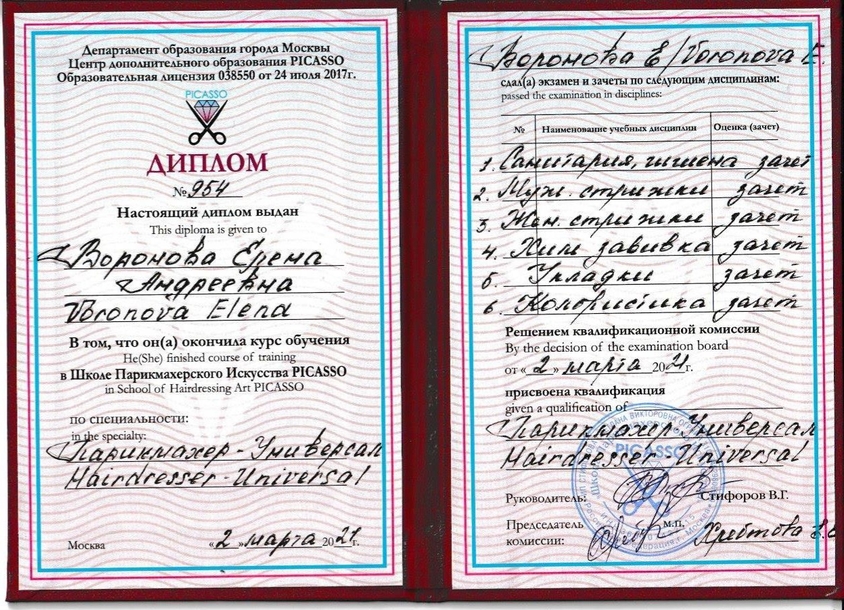 Департамент образования города Москвы
Центр дополнительного образования PICASSO
Образовательная лицензия 038550 от 24 июля 2017г.
PICASSO
ДИПЛОМ
№ 954
Настоящий диплом выдан
This diploma is given to
Воронова Елена
Андреевна
Voronova Elena
В том, что он(а) окончила курс обучения
He(She) finished course of training
в Школе Парикмахерского Искусства PICASSO
in School of Hairdressing Art PICASSO
по специальности:
in the specialty:
Парикмахер-Универсал
Hairdresser-Universal
Москва «2» марта 2021г.
Воронова Е/Voronova E.
сдал(а) экзамен и зачеты по следующим дисциплинам:
passed the examination in disciplines:
№ Наименование учебных дисциплин Оценка (зачет)
1. Санитария, гигиена зачет
2. Муж. стрижки зачет
3. Жен. стрижки зачет
4. Хим завивка зачет
5. Укладки зачет
6. Колористика зачет
Решением квалификационной комиссии
By the decision of the examination board
от «2» марта 2021г.
присвоена квалификация
given a qualification of
Парикмахер-Универсал
Hairdresser-Universal
PICASSO
Руководитель: Стифоров В.Г.
Председатель
комиссии: м.п.